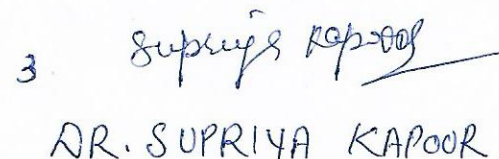 3 Supriya Kapoor
DR. SUPRIYA KAPOOR